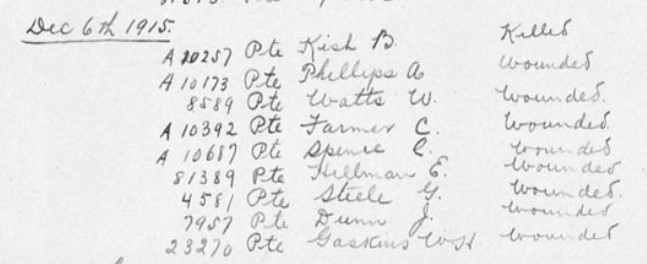 Dec 6th 1915.
A 20257 Pte Kish B. Killed
A 10173 Pte Phillips A Wounded
8589 Pte Watts W. Wounded.
A 10392 Pte Farmer C. Wounded.
A 10687 Pte Spence C. Wounded
81389 Pte Hillman E. Wounded
4581 Pte Steele G. Wounded.
7957 Pte Dunn J. Wounded
23270 Pte Gaskins Wounded